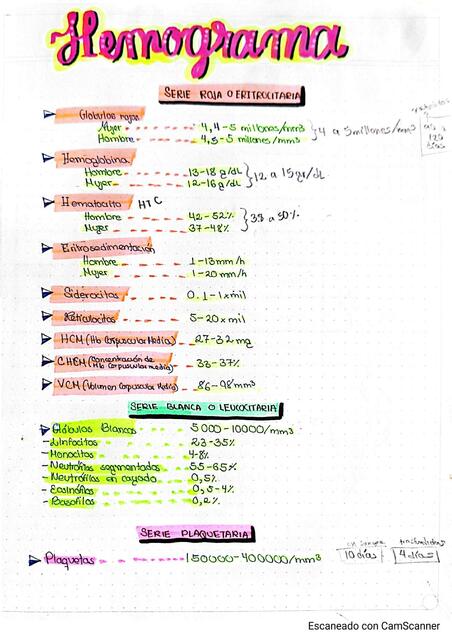 Hemograma
SERIE ROJA O ERITROCITARIA
Glóbulos rojos
Mujer 4,4-5 millones/mm³
Hombre 4,5-5 millones/mm³
4 a 5 millones/mm³
120
días
Hemoglobina
Hombre 13-18 g/dL
Mujer 12-16 g/dL
12 a 15 gr/dL
Hematocito HTC
Hombre 42-52%
Mujer 37-48%
Eritrosedimentación
Hombre 1-13 mm/h
Mujer 1-20 mm/h
Siderocitos 0.1-1 x mil
Reticulocitos 5-20 x mil
HCM (Hb Corpuscular Media) 27-32 mg
CHCM (Concentración de Hb Corpuscular media) 33-37%
VCM (Volumen Corpuscular Medio) 86-98 mm³
SERIE BLANCA O LEUCOCITARIA
Glóbulos Blancos 5000-10000/mm³
-Linfocitos 23-35%
-Monocitos 4-8%
-Neutrófilos segmentados 55-65%
-Neutrófilos en cayado 0,5%
-Eosinófilos 0,5-4%
-Basófilos 0,2%
SERIE PLAQUETARIA
Plaquetas 150000-400000/mm³
en sangre
10 días
4 días
Escaneado con CamScanner